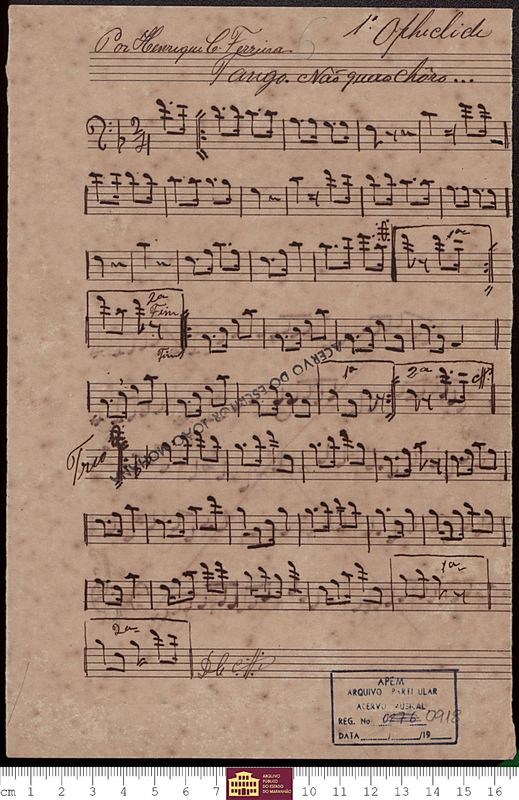 1º Ophiclide
Por Henrique C. Ferreira
6
Tango. Não quero chôro...
2
4
1a
2a
Fim
Fim
ACERVO DO ESCRITOR JOÃO MOHANA
1a
2a
Trio
1a
2a
D. C.
APEM
ARQUIVO PARTICULAR
ACERVO MUSICAL
REG. No 0276 0918
DATA / /19
cm 1 2 3 4 5 6 7 9 10 11 12 13 14 15 16
ARQUIVO
PÚBLICO
DO ESTADO
DO MARANHÃO